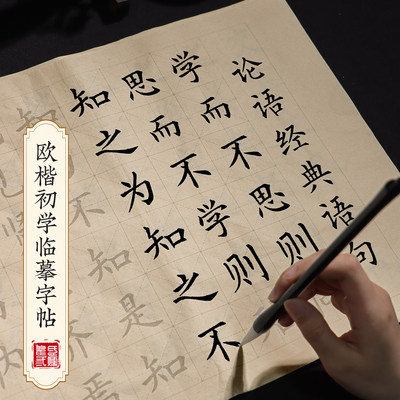 论语经典语句
学而不思则
思而不学则
知之为知之不
知不知是知
贤齐焉
内
欧楷初学临摹字帖